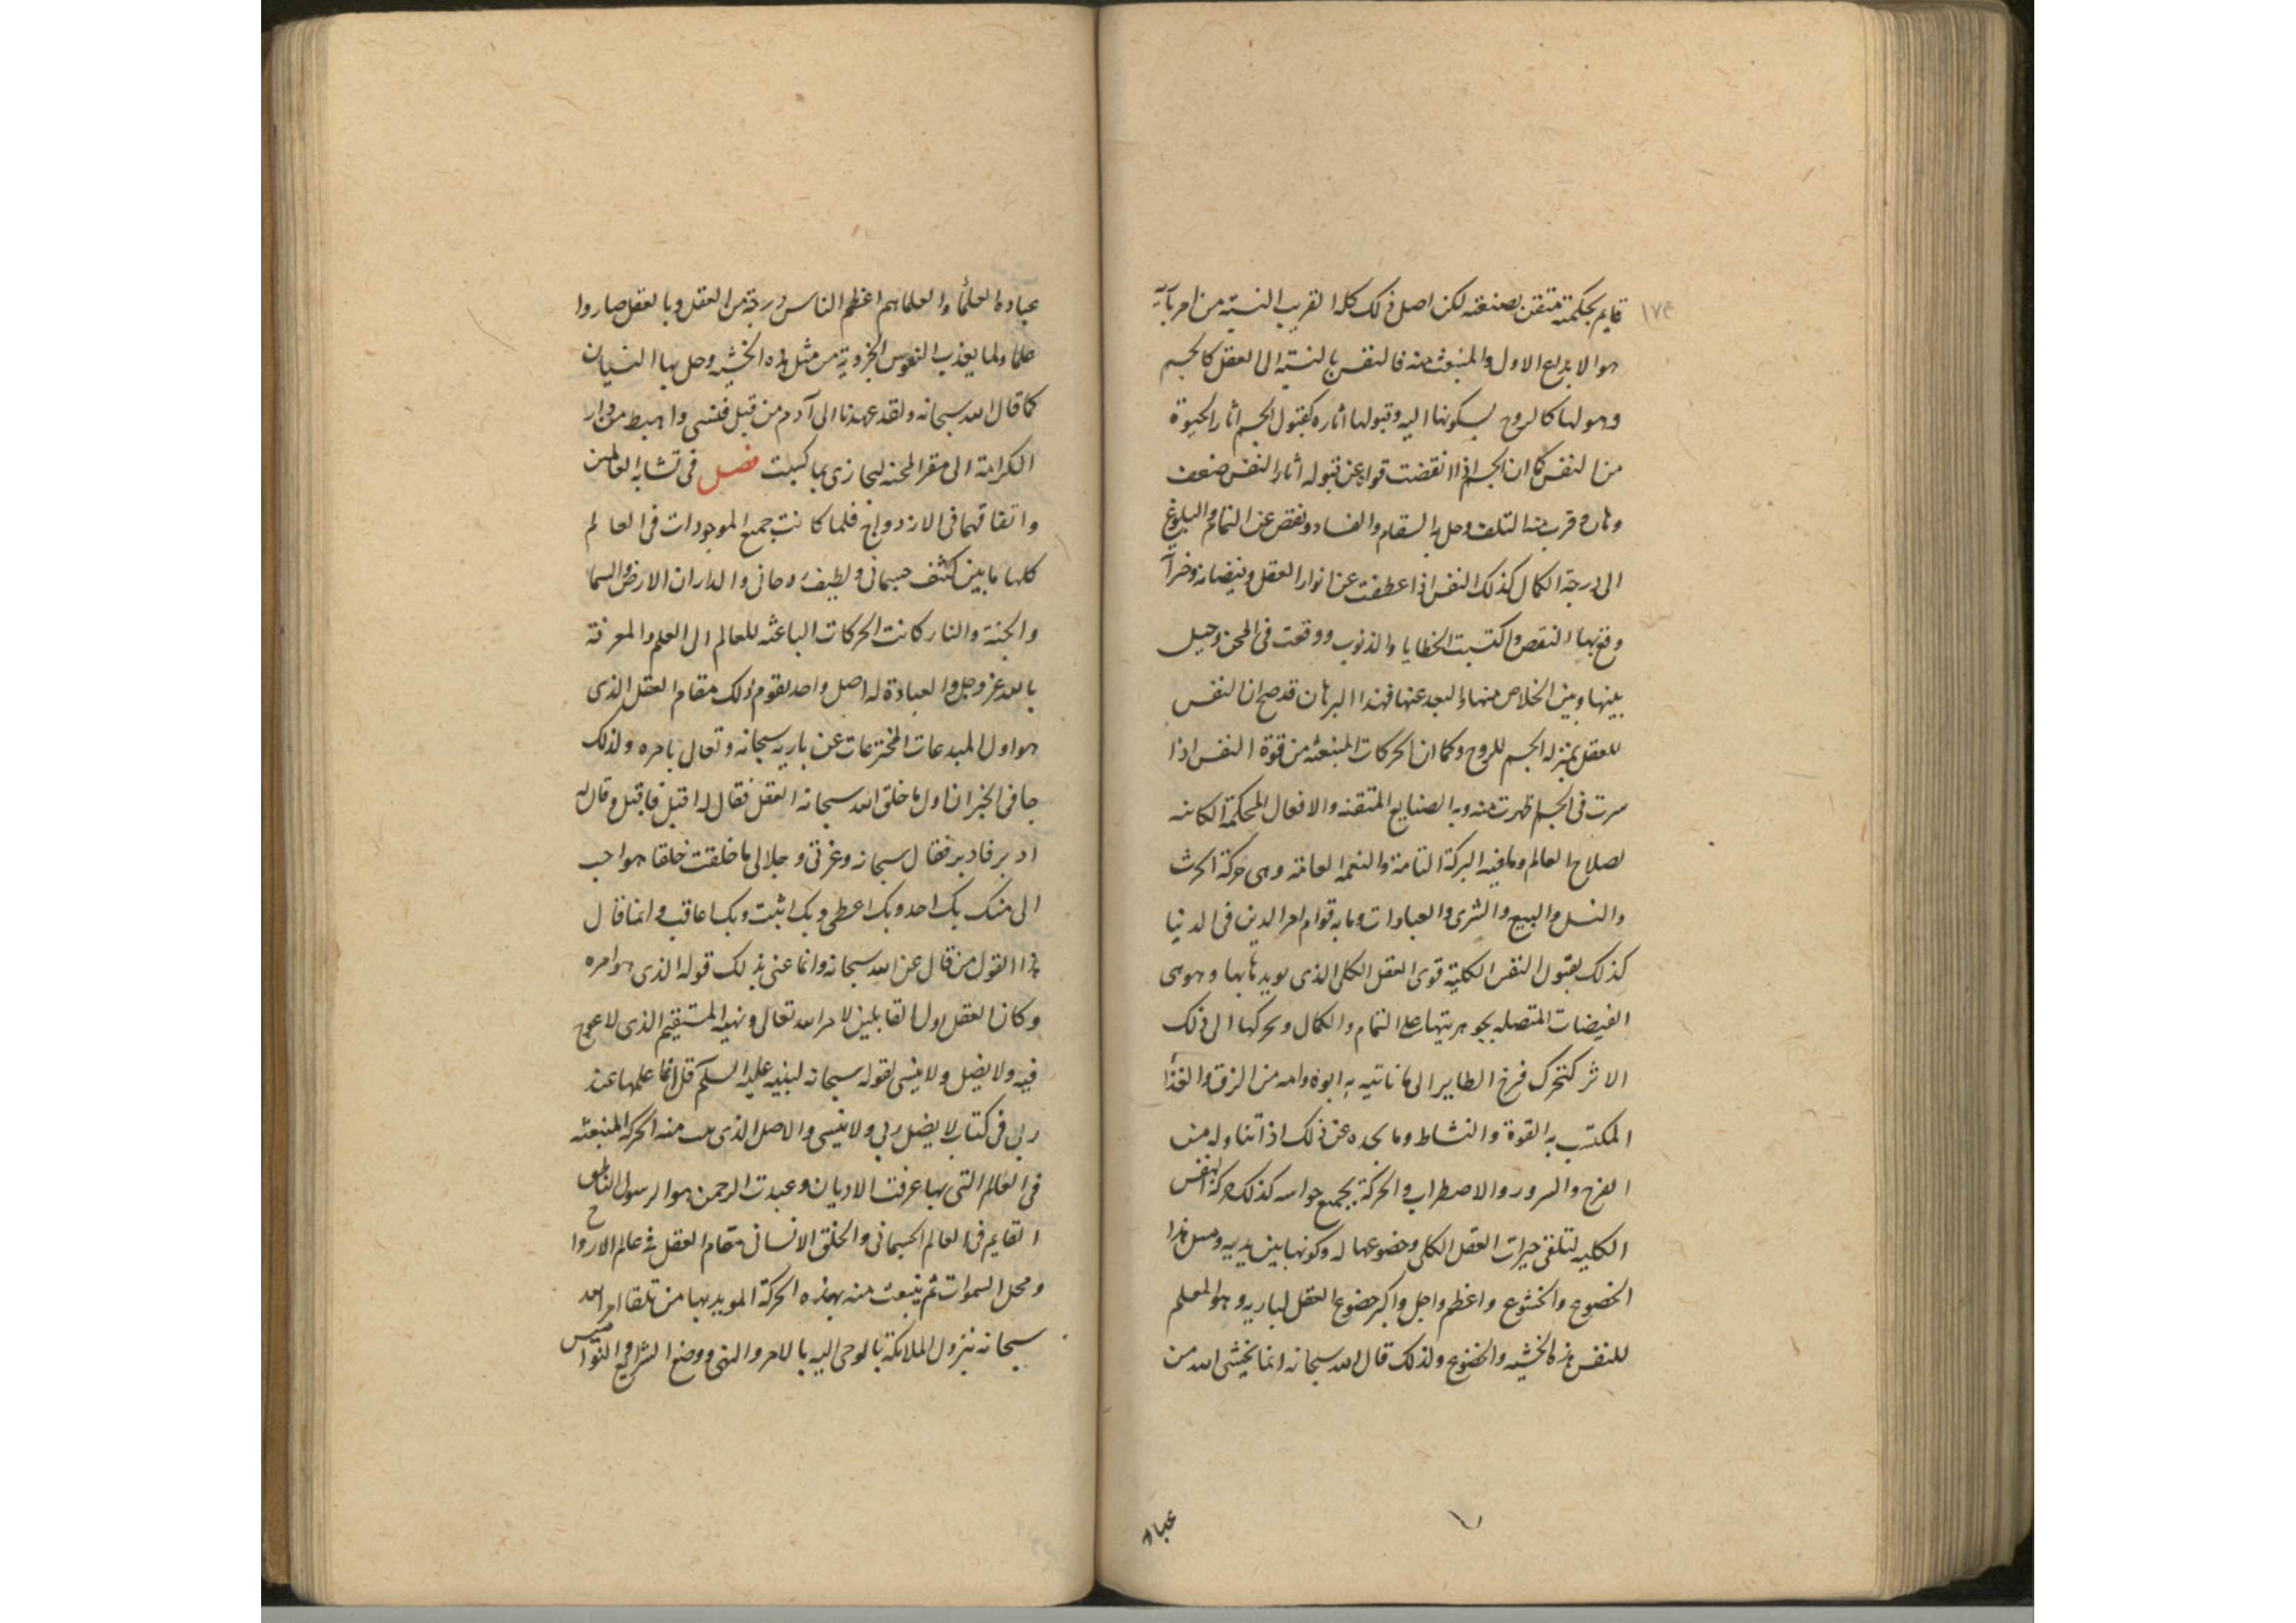 ١٧٤
قايم بحكمته متقن بصنعته لكن اصل ذلك كله القريب النسبة من امر باريه
هو الابداع الاول والمنبعث منه فالنفس بالنسبة الى العقل كالجسم
وهو لها كالروح بسكونها اليه وقبولها اثاره كقبول الجسم اثار الحيوة
من النفس كما ان الجسم اذا نقضت قواه عن قبوله اثار النفس ضعف
وهان وقرب منه التلف وحل به السقام والفساد ونقص عن التمام والبلوغ
الى درجة الكمال كذلك النفس اذا عطفت عن انوار العقل وفيضانه وخيراته
وقع بها النقص واكتسبت الخطايا والذنوب ووقعت فى المحن وحيل
بينها وبين الخلاص منها والبعد عنها فهذا البرهان قد صح ان النفس
للعقل بمنزله الجسم للروح وكما ان الحركات المنبعثه من قوة النفس اذا
سرت فى الجسم ظهرت منه وبه الصنايع المتقنه والافعال المحكمة الكاينه
لصلاح العالم وما فيه البركة التامة والنعمه العامة وهى حركة الحرث
والنسل والبيع والشرى والعبادات وما به قوام امر الدين فى الدنيا
كذلك بقبول النفس الكلية قوى العقل الكلى الذى يويدها بها وهو هى
الفيضات المتصله بجوهريتها على التمام والكمال وتحركها الى ذلك
الاثر كتحرك فرخ الطاير الى ما تاتيه به ابوه وامه من الزق والغذا
المكتسب به القوة والنشاط وما يجده عن ذلك اذا تناوله من
الفرح والسرور والاضطراب والحركة بجميع حواسه كذلك حركة النفس
الكليه لتلقى خيرات العقل الكلى وخضوعها له وكونها بين يديه ومثل هذا
الخضوع والخشوع واعظم واجل واكبر خضوع العقل لباريه وهو المعلم
للنفس هذه الخشيه والخضوع ولذلك قال الله سبحانه انما يخشى الله من
عباده
عباده العلمأ والعلما هم اعظم الناس درجة من العقل وبالعقل صاروا
علما ولما يعذب النفوس الجزوية من مثل هذه الخشيه وحل بها النسيان
كما قال الله سبحانه ولقد عهدنا الى آدم من قبل فنسى واهبط من دار
الكرامة الى مقر المحنه ليجازى بما كسبت فصل فى تشابه العالمين
واتفاقهما فى الازدواج فلما كانت جميع الموجودات فى العالم
كلها ما بين كثف جسمانى ولطيف روحانى والداران الارض والسما
والجنة والنار كانت الحركات الباعثه للعالم الى العلم والمعرفة
بالله عز وجل والعبادة له اصل واحد يقوم ذلك مقام العقل الذى
هو اول المبدعات المخترعات عن باريه سبحانه وتعالى بامره ولذلك
جا فى الخبر ان اول ما خلق الله سبحانه العقل فقال له اقبل فاقبل وقال له
ادبر فادبر فقال سبحانه وعزتى وجلالى ما خلقت خلقا هو احب
الى منك بك اخذ وبك اعطى وبك اثيب وبك اعاقب وانما قال
هذا القول من قال عن الله سبحانه وانما عنى بذلك قوله الذى هو امره
وكان العقل اول القابلين لامر الله تعالى ونهيه المستقيم الذى لا عوج
فيه ولا يضل ولا ينسى لقوله سبحانه لنبيه عليه السلم قل انما علمها عند
ربى فى كتاب لا يضل ربى ولا ينسى والاصل الذى منه الحركة المنبعثه
فى العالم التى بها عرفت الاديان وعبدت الرحمن هو الرسول الناطق
القايم فى العالم الجسمانى والخلق الانسانى مقام العقل فى عالم الارواح
ومحل السموات ثم ينبعث منه بهذه الحركة المويد بها من تلقا امر الله
سبحانه بنزول الملائكة بالوحى اليه بالامر والنهى ووضع الشرايع والنواميس